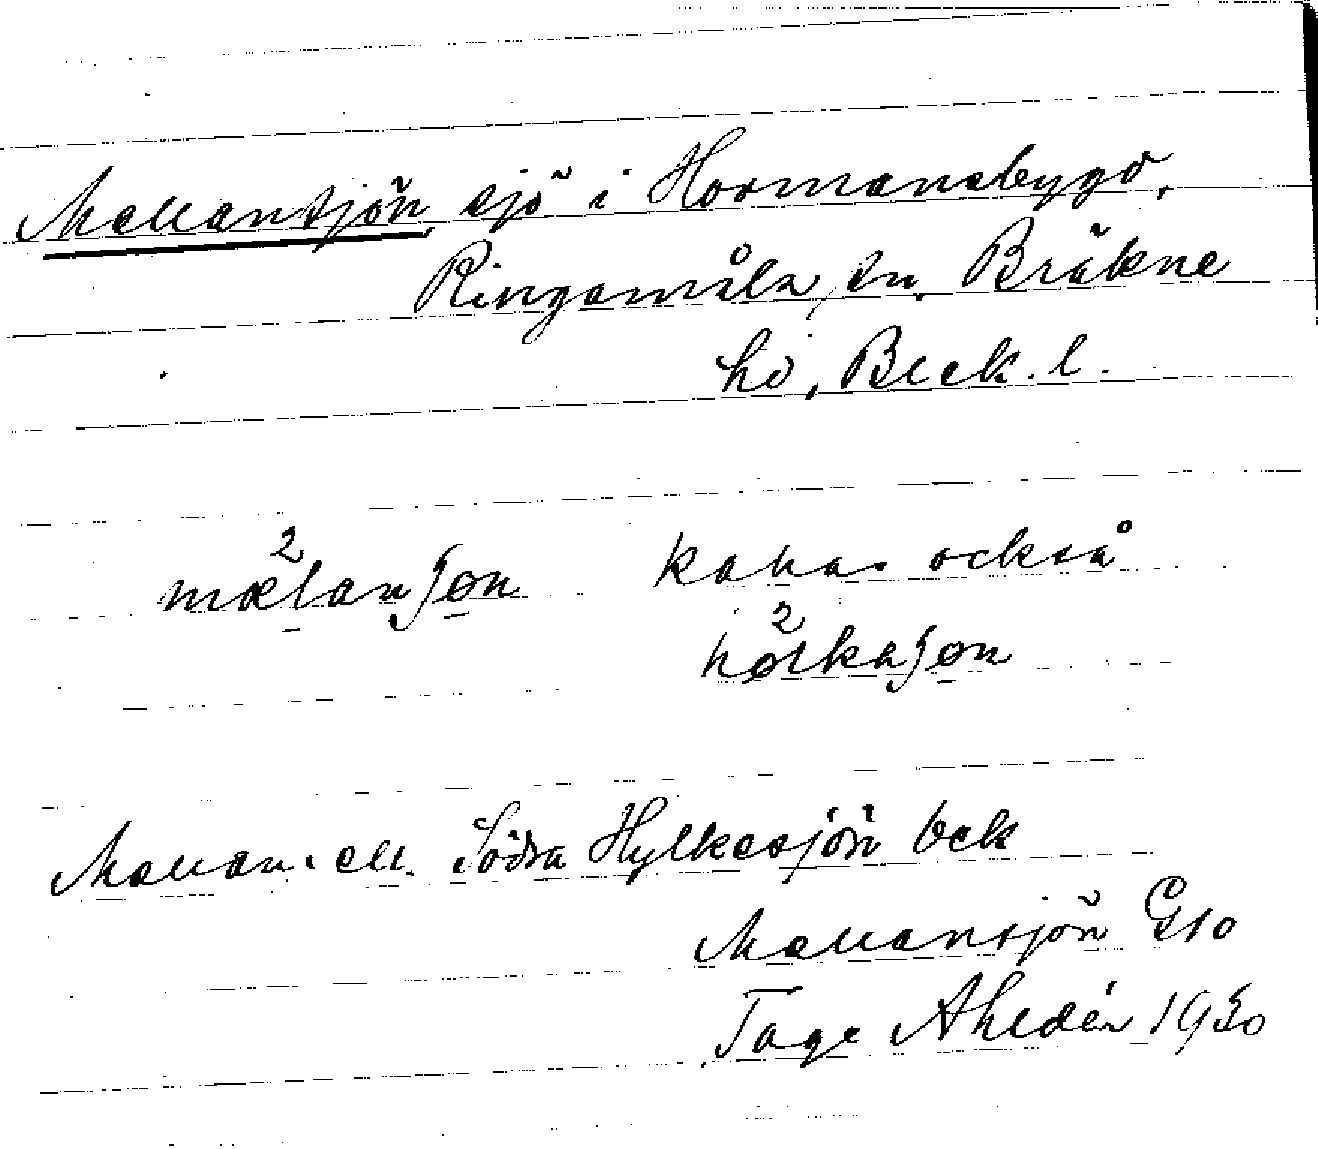 Mellansjön, sjö i Hormanebygd,
Ringamåla, sn. Bräkne
hd, Blek. l.
mælanʃøn kallas också
hølkaʃøn
Mellan- ell. Södra Hylkesjön bek
Mellansjön GSD
Tage Ahldén 1930